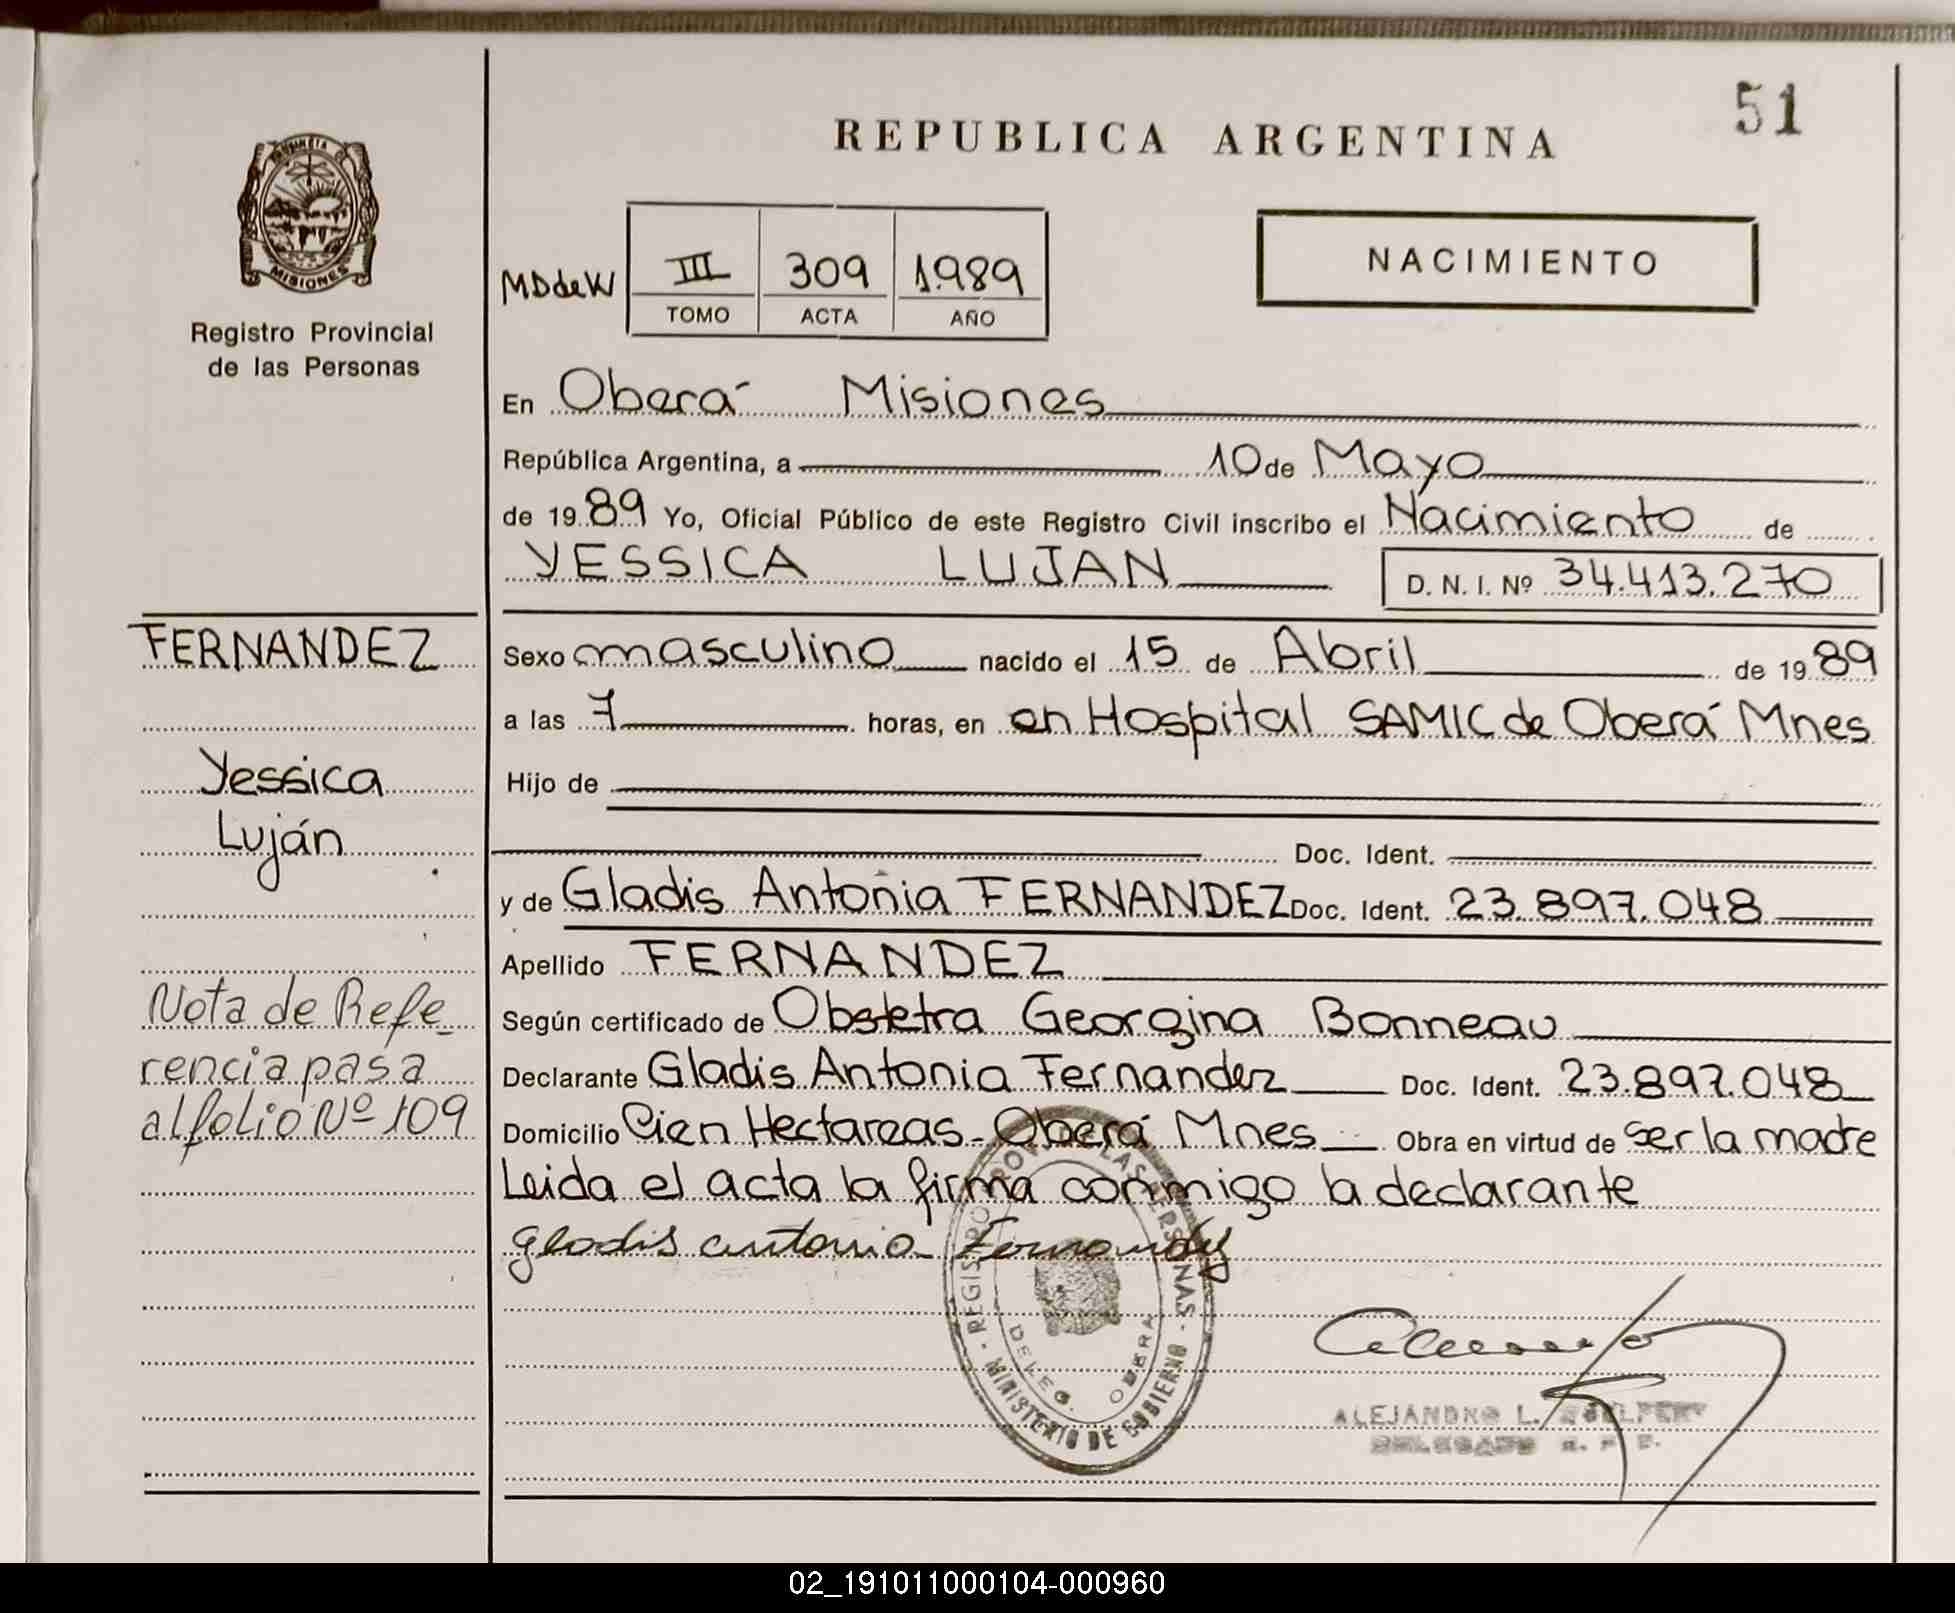 51
REPUBLICA ARGENTINA
PROVINCIA D
MISIONES
Registro Provincial
de las Personas
NACIMIENTO
MDdeW III 309 1.989
TOMO ACTA AÑO
En Oberá Misiones
República Argentina, a 10 de Mayo
de 1989 Yo, Oficial Público de este Registro Civil inscribo el Nacimiento de
YESSICA LUJAN D. N. I. Nº 34.413.270
FERNANDEZ
Yessica
Luján
Nota de Refe-
rencia pasa
al folio Nº 109
Sexo masculino nacido el 15 de Abril de 1989
a las 7 horas, en en Hospital SAMIC de Oberá Mnes
Hijo de
Doc. Ident.
y de Gladis Antonia FERNANDEZ Doc. Ident. 23.897.048
Apellido FERNANDEZ
Según certificado de Obstetra Georgina Bonneau
Declarante Gladis Antonia Fernandez Doc. Ident. 23.897.048
Domicilio Cien Hectareas - Oberá Mnes Obra en virtud de ser la madre
Leida el acta la firma conmigo la declarante
gladis antonia Fernandez
REGISTRO PROV. DE LAS PERSONAS - MINISTERIO DE GOBIERNO -
DELEG. OBERA
ALEJANDRO L.
DELEGADO R. P. P.
02_191011000104-000960